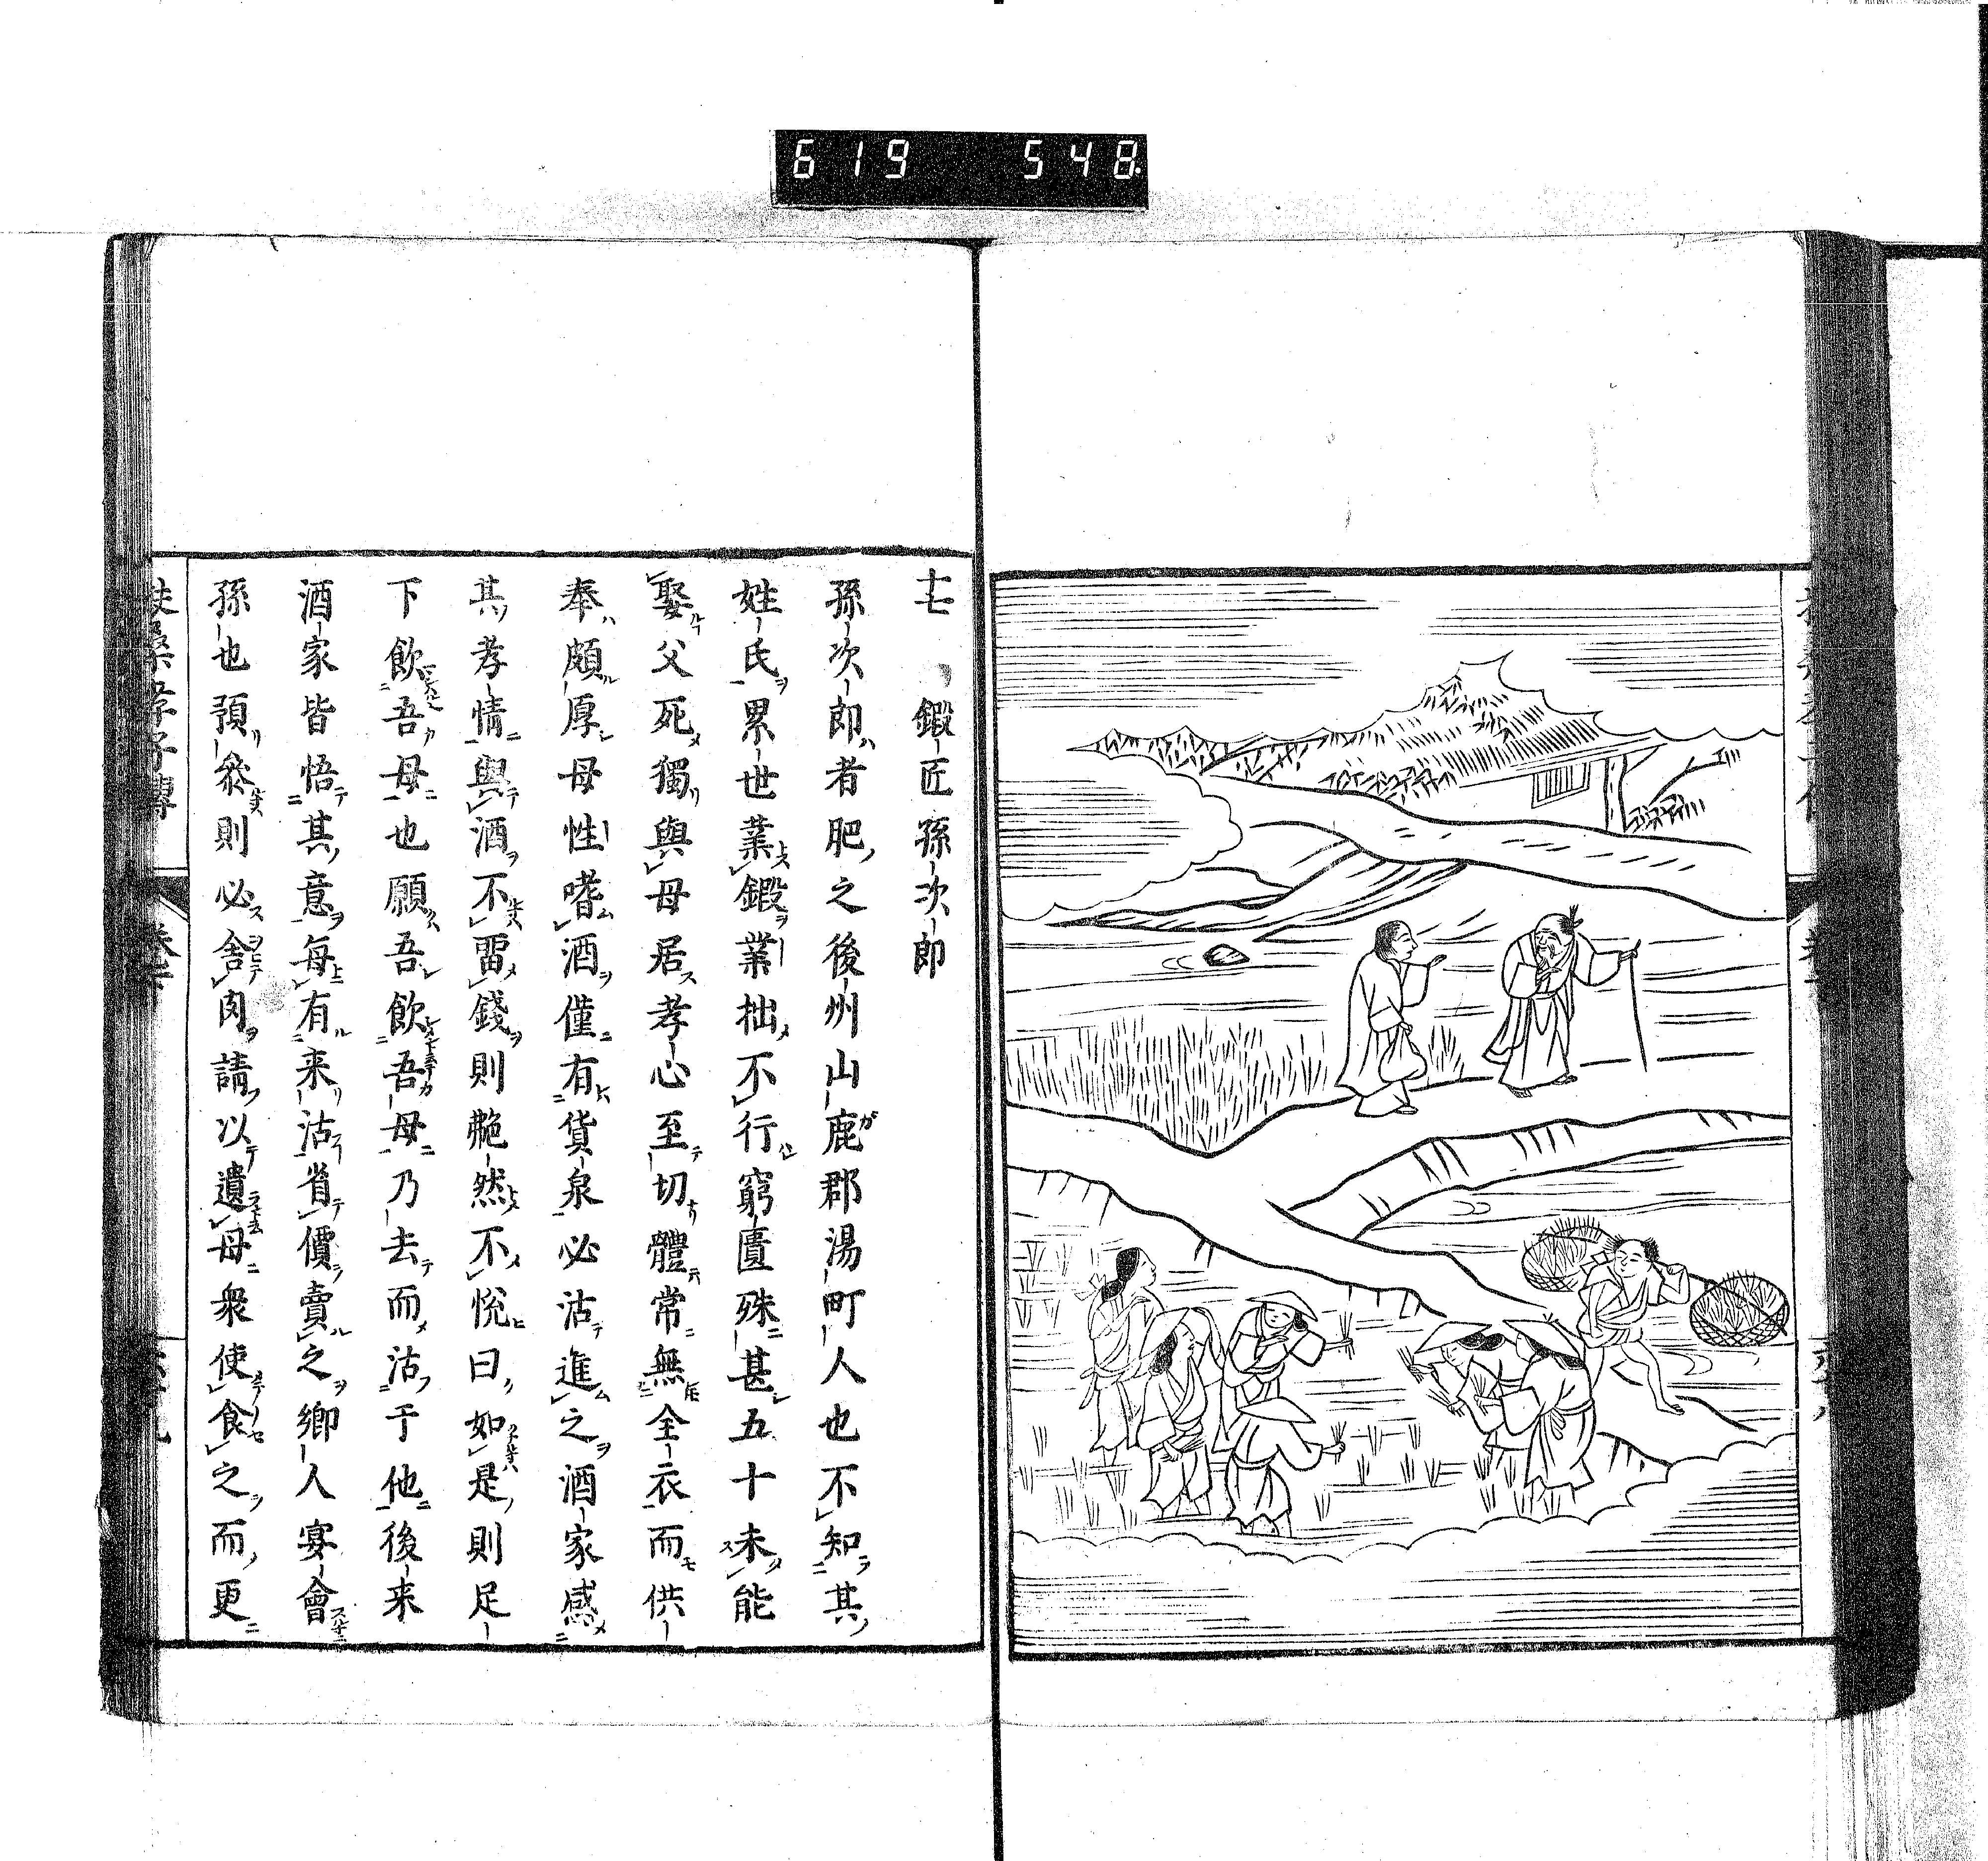 619 548
十七 鍛匠孫次郎
孫次郎者肥之後州山鹿郡湯町人也不知其
姓氏累世業鍛業拙不行窮匱殊甚五十未能
娶父死獨與母居孝心至切體常無全衣而供
奉頗厚母性嗜酒僅有貨泉必沽進之酒家感
其孝情與酒不畱錢則艴然不悦曰如是則足
下飲吾母也願吾飲吾母乃去而沽于他後来
酒家皆悟其意毎有来沽省價賣之鄉人宴會
孫也預參則必舎肉請以遺母衆使食之而更
扶桑孝子傳